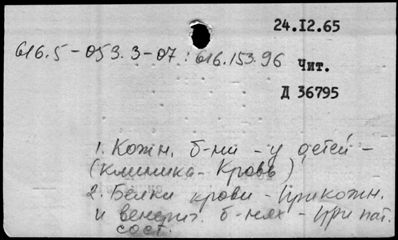 24.I2.65
616.5-053.3-07:616.153.96
Чит.
Д 36795
1. Кожн. б-ни - у детей -
(Клиника - Кровь)
2. Белки крови - При кожн.
и венериг. б-нях - При пат.
сост.